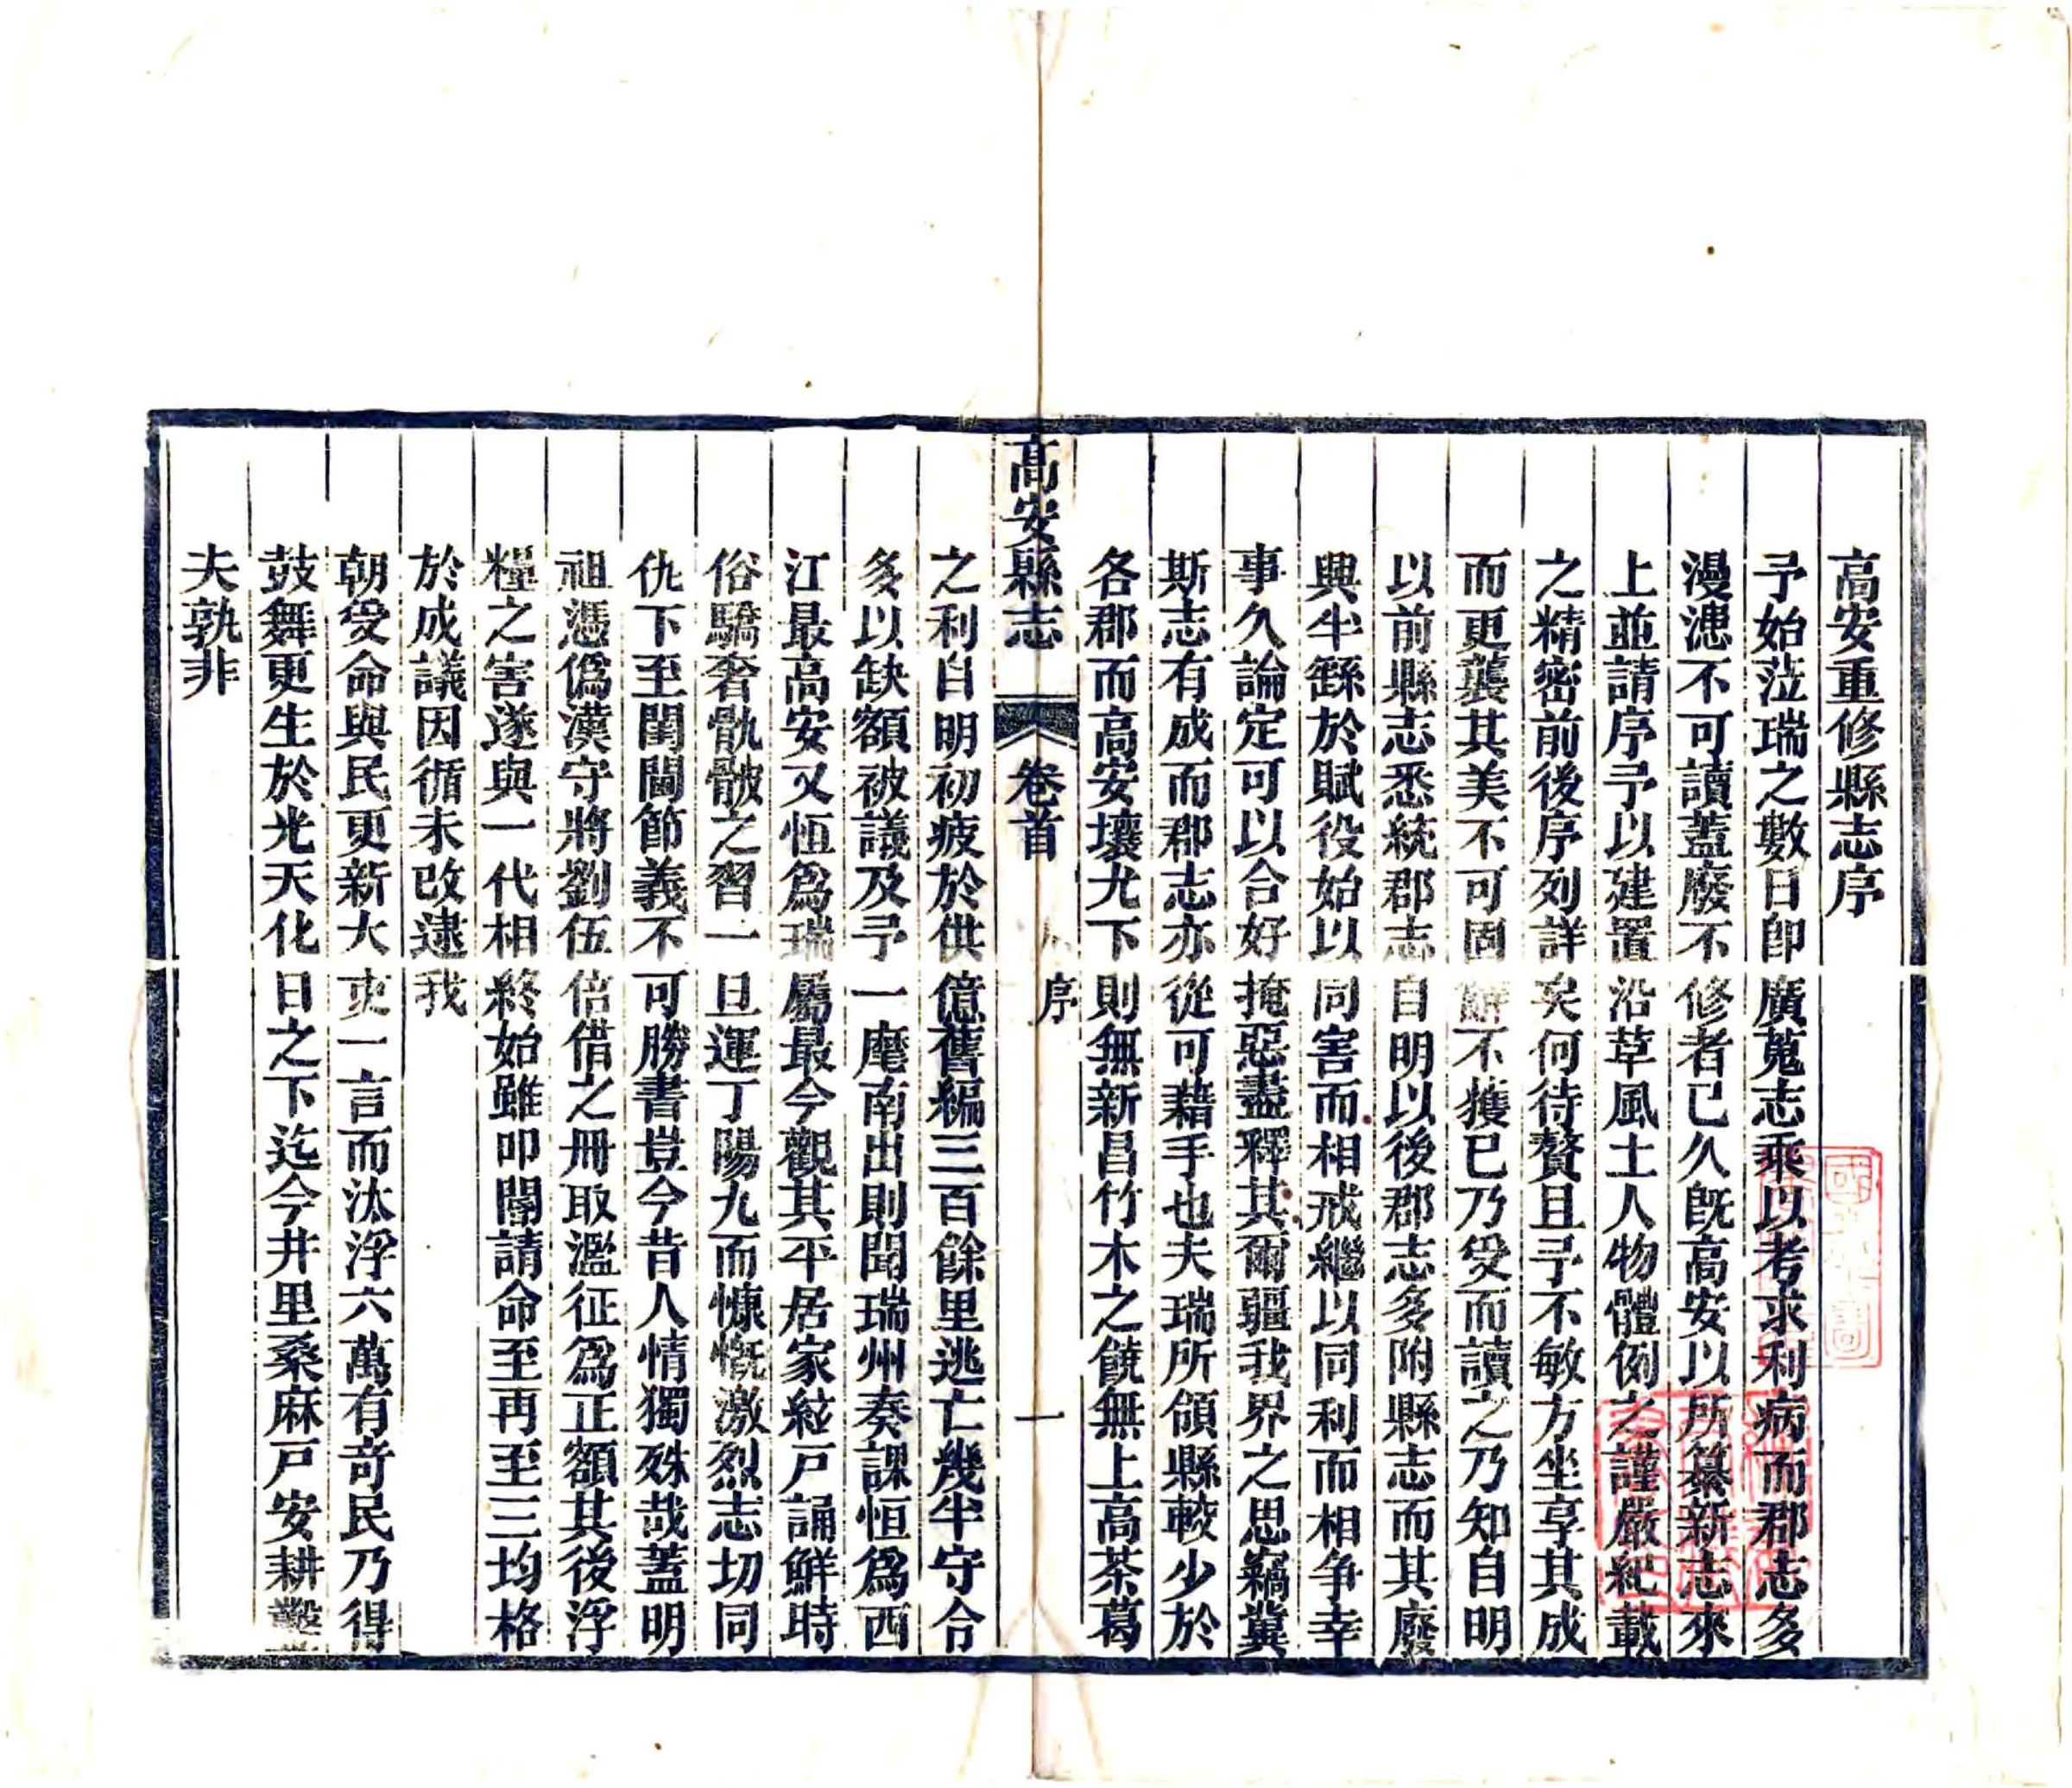 高安重修縣志序
予始蒞瑞之數日卽廣蒐志乘以考求利病而郡志多
漫漶不可讀蓋廢不修者已久旣高安以所纂新志來
上並請序予以建置沿革風土人物體例之謹嚴紀載
之精密前後序列詳矣何待贅且予不敏方坐享其成
而更襲其美不可固辭不獲已乃受而讀之乃知自明
以前縣志悉統郡志自明以後郡志多附縣志而其廢
興半繇於賦役始以同害而相戒繼以同利而相爭幸
事久論定可以合好掩惡盡釋其爾疆我界之思竊冀
斯志有成而郡志亦從可藉手也夫瑞所領縣較少於
各郡而高安壤尤下則無新昌竹木之饒無上高茶葛
高安縣志 卷首 序 一
之利自明初疲於供億舊編三百餘里逃亡幾半守令
多以缺額被議及予一麾南出則聞瑞州奏課恒爲西
江最高安又恒爲瑞屬最今觀其平居家絃戸誦鮮時
俗驕奢骩骳之習一旦運丁陽九而慷慨激烈志切同
仇下至閨閫節義不可勝書豈今昔人情獨殊哉蓋明
祖憑僞漢守將劉伍倍借之冊取濫征爲正額其後浮
糧之害遂與一代相終始雖叩閽請命至再至三均格
於成議因循未改逮我
朝受命與民更新大吏一言而汰浮六萬有竒民乃得
鼓舞更生於光天化日之下迄今井里桑麻戸安耕鑿
夫孰非